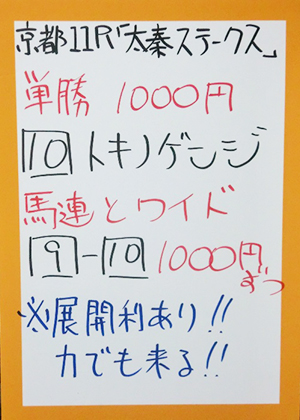 京都11R「太秦ステークス」
単勝 1000円
10 トキノゲンジ
馬連とワイド
9-10 1000円ずつ
※展開利あり!!
力でも来る!!